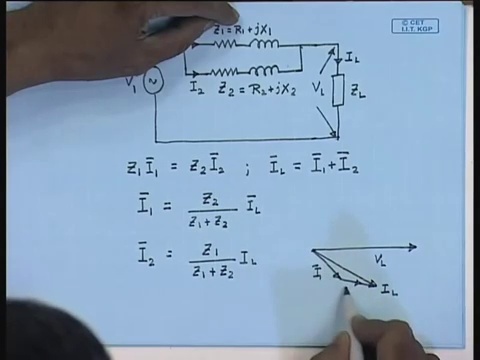 © CET
I.I.T. KGP
Z₁ = R₁ + jX₁
I_L
V₁
I₂ Z₂ = R₂ + jX₂
V_L
Z_L
Z₁ Ī₁ = Z₂ Ī₂ ; Ī_L = Ī₁ + Ī₂
Ī₁ = Z₂ / (Z₁ + Z₂) Ī_L
Ī₂ = Z₁ / (Z₁ + Z₂) I_L
V_L
Ī₁
I_L